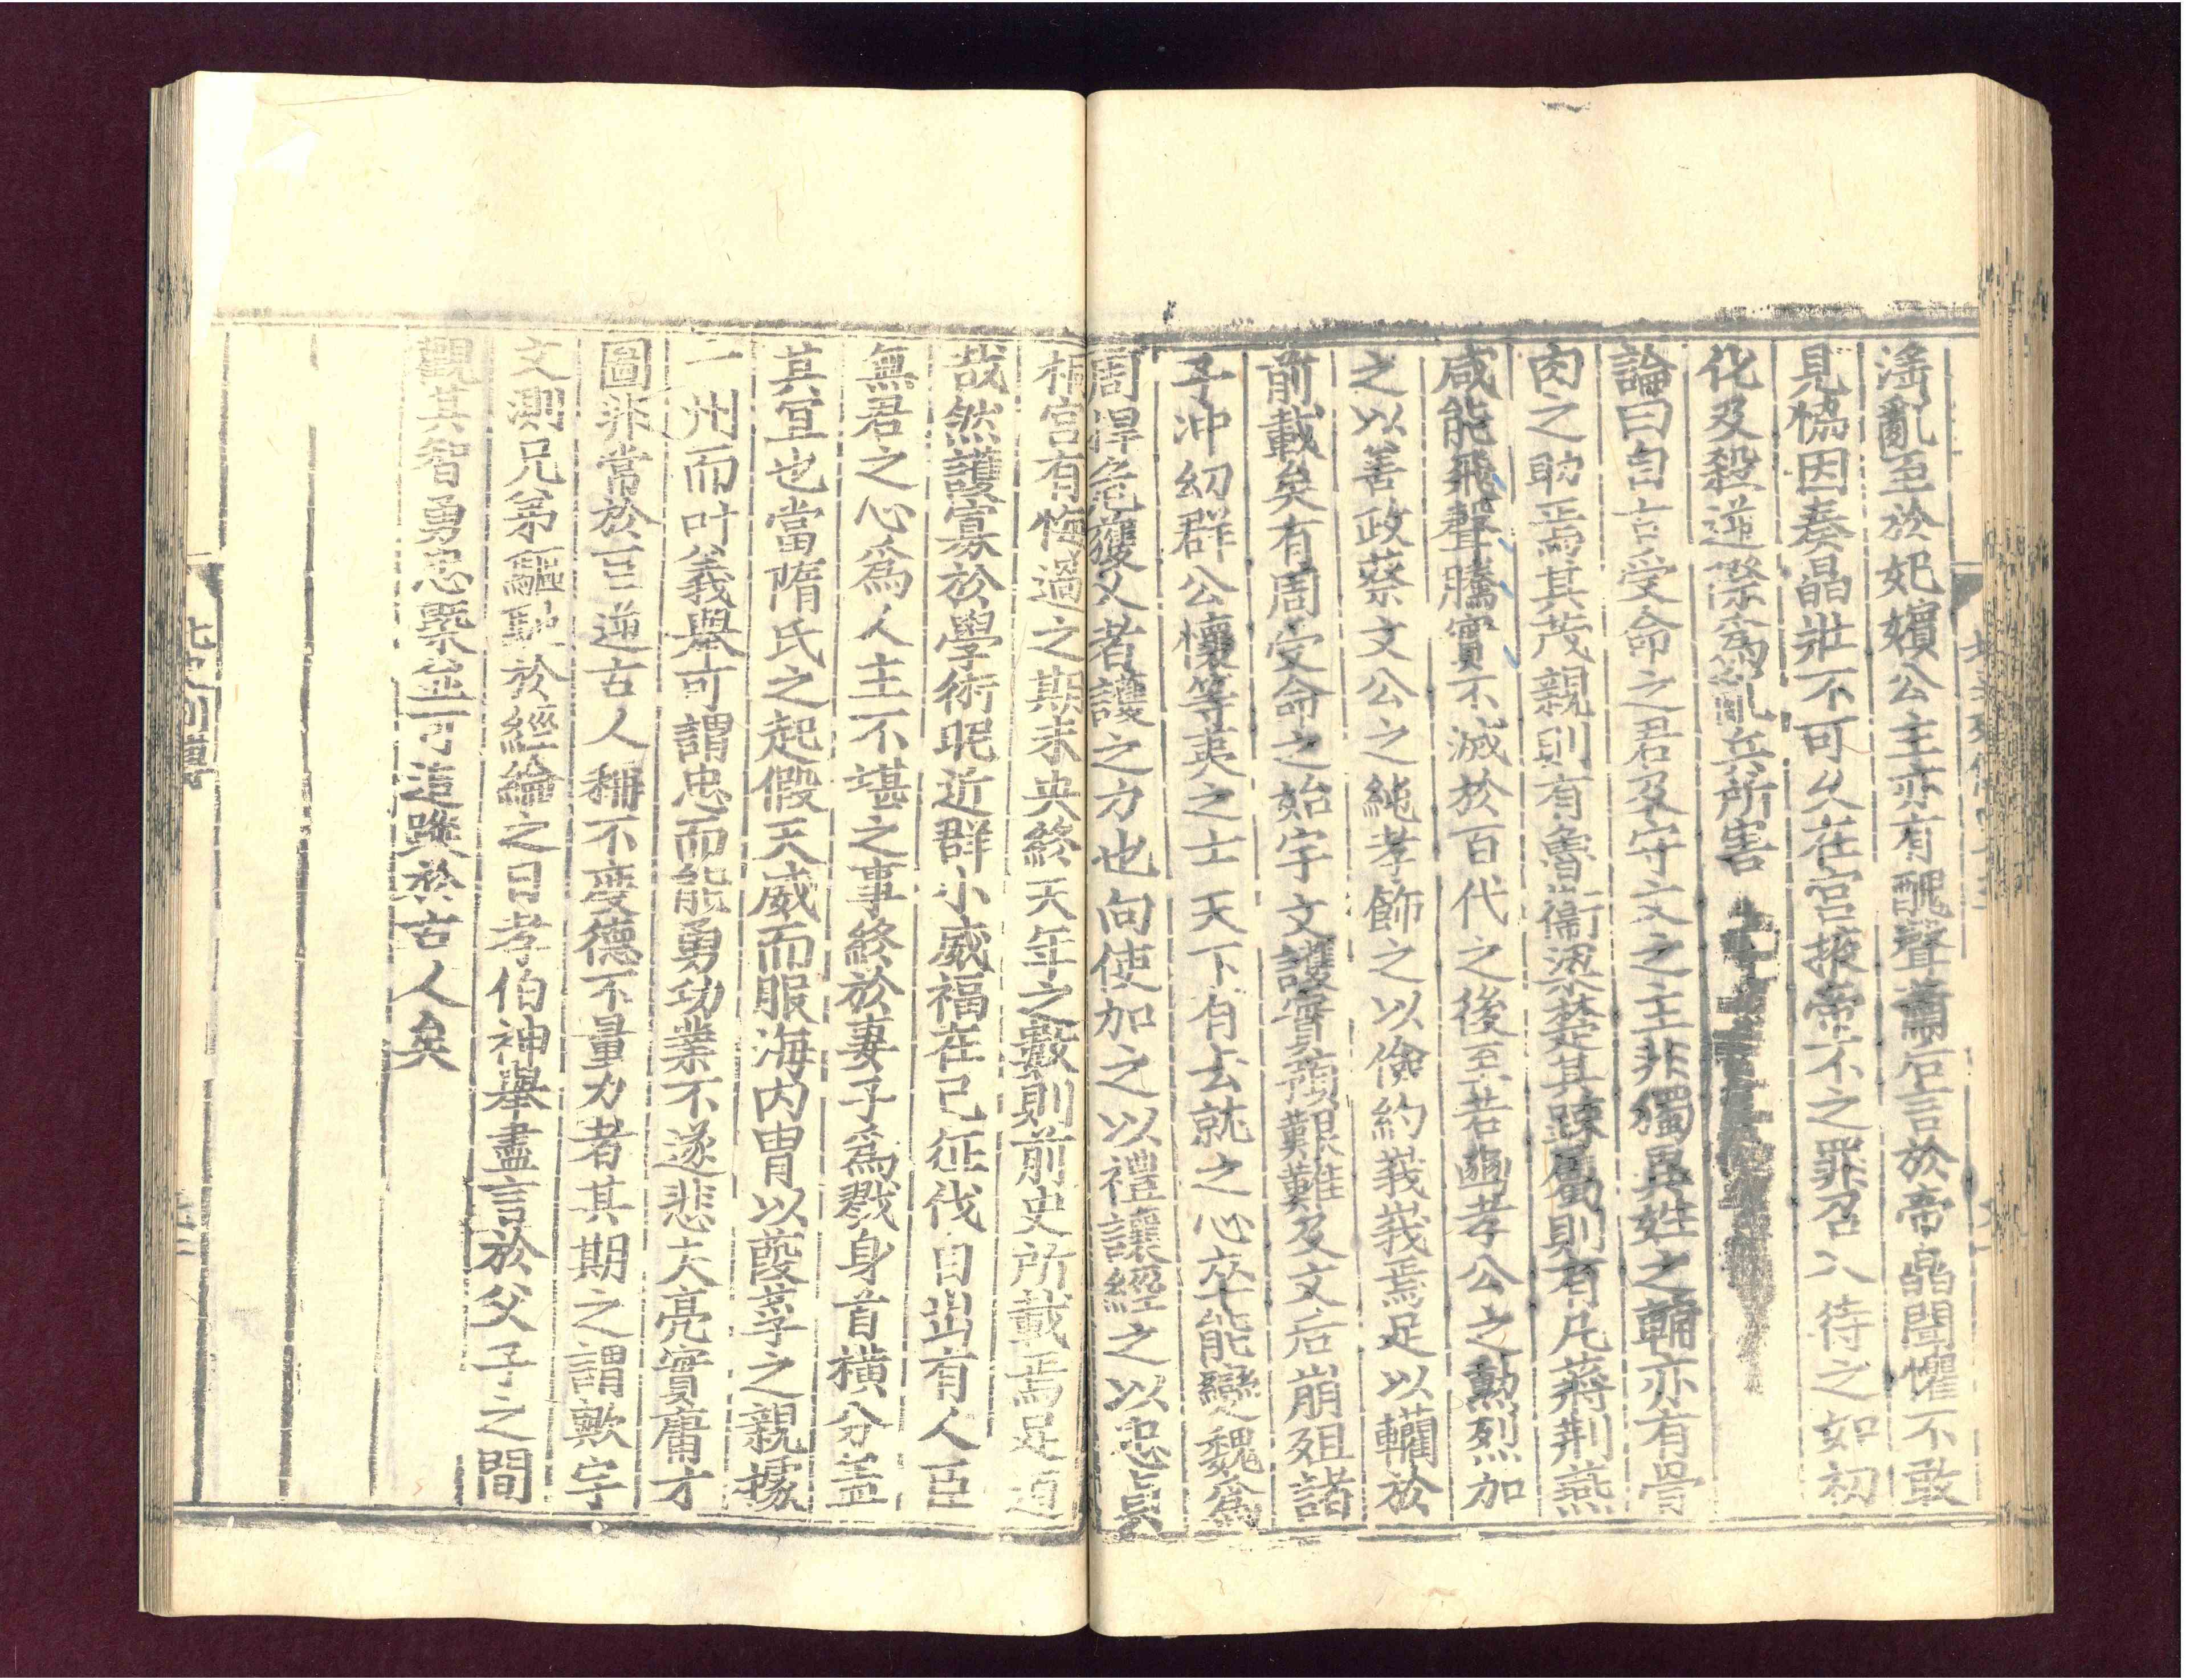 淫亂至於妃嬪公主亦有醜聲蕭后言於帝皛聞懼不敢
見恊因奏皛壯不可久在宮掖帝不之罪召入待之如初
化及殺逆際爲亂兵所害
論曰自古受命之君及守文之主非獨異姓之輔亦有骨
肉之助焉其茂親則有魯衞梁楚其踈属則有凡蔣荆燕
咸能飛聲騰實不滅於百代之後至若豳孝公之勲烈加
之以善政蔡文公之純孝飾之以儉約峩峩焉足以轥於
前載矣有周受命之始宇文護實預艱難及文后崩殂諸
子冲幼群公懷等夷之士天下有去就之心卒能變魏爲
周捍危獲乂者護之力也向使加之以禮讓經之以忠貞
桐宮有悔過之期未央終天年之數則前史所載焉足道
哉然護寡於學術昵近群小威福在己征伐自出有人臣
無君之心爲人主不堪之事終於妻子爲戮身首橫分盖
其冝也當隋氏之起假天威而服海内胄以葭莩之親據
一州而叶義舉可謂忠而能勇功業不遂悲夫亮實庸才
圖非常於巨逆古人稱不度德不量力者其期之謂歟宇
文測兄弟驅馳於經綸之日孝伯神舉盡言於父子之間
觀其智勇忠槩並可追蹤於古人矣